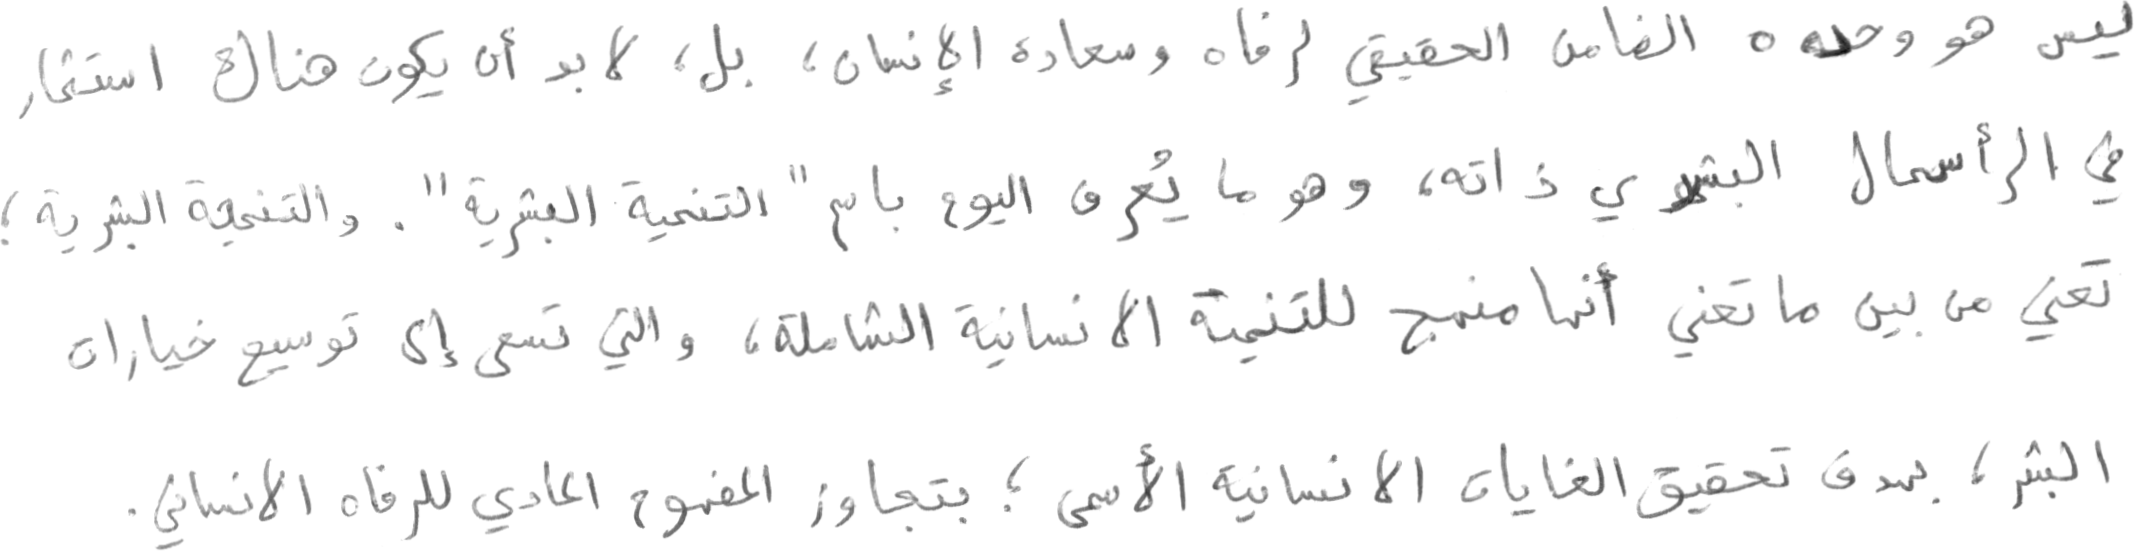 ليس هو وحده الضامن الحقيقي لرفاه وسعادة الإنسان، بل، لا بد أن يكون هناك استثمار
في الرأسمال البشري ذاته، وهو ما يُعرف اليوم باسم "التنمية البشرية". والتنمية البشرية؛
تعني من بين ما تعني أنها منهج للتنمية الانسانية الشاملة، والتي تسعى إلى توسيع خيارات
البشر، بهدف تحقيق الغايات الانسانية الأسمى؛ بتجاوز المفهوم المادي للرفاه الانساني.